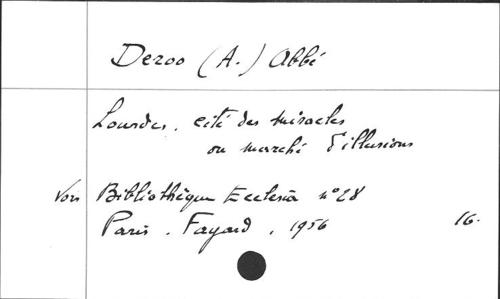 Deroo (A.) Abbé
Lourdes, cité des miracles
ou marché d'illusions
Voir Bibliothèque Ecclesia n° 28
Paris. Fayard, 1956 16.